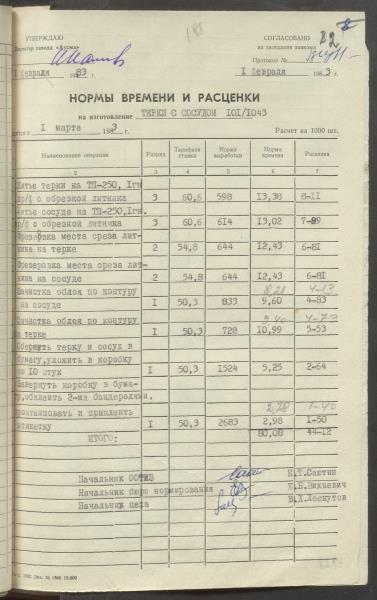 УТВЕРЖДАЮ
Директор завода «Кусма»
I февраля 1983 г.
СОГЛАСОВАНО
на заседании завкома
Протокол №
I февраля 1983 г.
82
НОРМЫ ВРЕМЕНИ И РАСЦЕНКИ
на изготовление ТЕРКИ С СОСУДОМ IOI/IO43
I марта 1983 г. Расчет на 1000 шт.
Наименование операции Разряд Тарифная ставка Норма выработки Норма времени Расценка
2 3 4 5 6 7
Литье терки на ТП-250, Iгн.
пр/ф с обрезкой литника 3 60,6 598 13,38 8-II
Литье сосуда на ТП-250,Iгн.
пр/ф с обрезкой литника 3 60,6 614 13,02 7-89
Фрезеровка места среза лит-
ника на терке 2 54,8 644 12,43 6-8I
Фрезеровка места среза лит-
ника на сосуде 2 54,8 644 12,43 6-8I
8,28 4-13
Зачистка облоя по контуру
на сосуде I 50,3 833 9,60 4-83
9,40 4-73
Зачистка облоя по контуру
на терке I 50,3 728 10,99 5-53
Обернуть терку и сосуд в
бумагу,уложить в коробку
по IO штук I 50,3 1524 5,25 2-64
Завернуть коробку в бума-
гу,обклеить 2-мя бандеролями,
проштамповать и приклеить
2,78 1-40
этикетку I 50,3 2683 2,98 1-50
ИТОГО: 80,08 44-12
Начальник ООТИЗ Н.Т.Саютин
Начальник бюро нормирования Е.Б.Вихневич
Начальник цеха В.Д.Лоскутов
Зак. № 1568 10.000